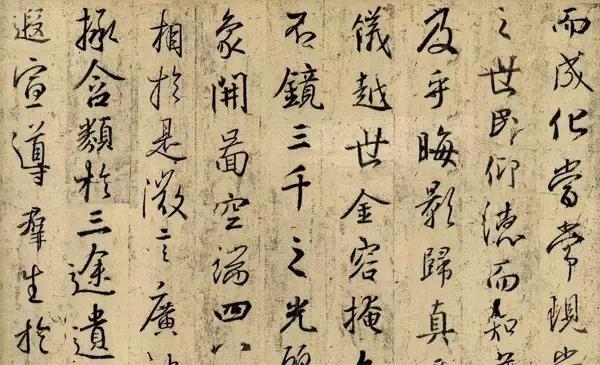 而成化當常現常
之世民仰德而知
及乎晦影歸真
儀越世金容掩
不鏡三千之光
象開圖空端四八
相於是微言廣
拯含類於三途遺
遐宣導群生於